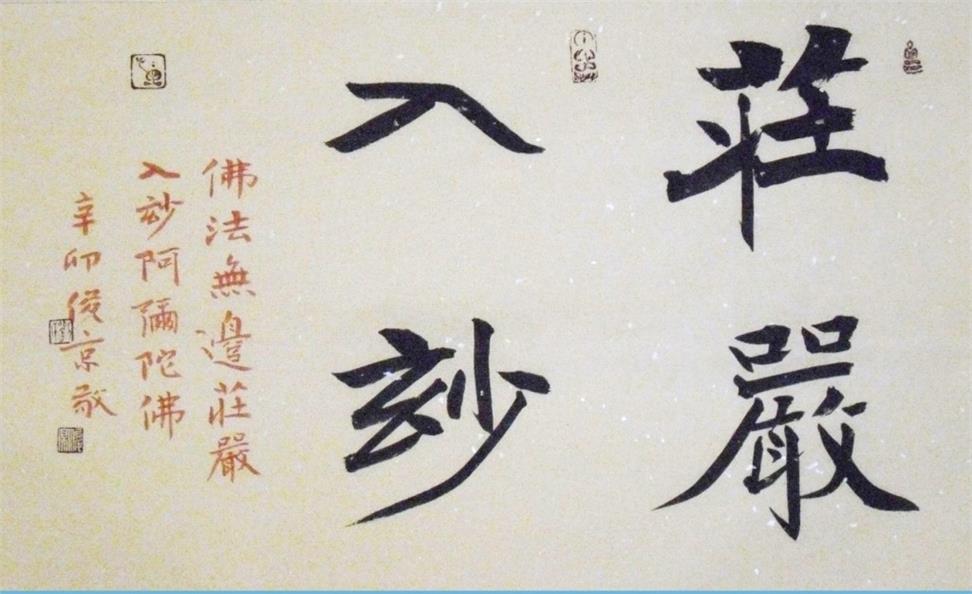 莊嚴
入玅
佛法無邊莊嚴
入玅阿彌陀佛
辛卯俊京敬